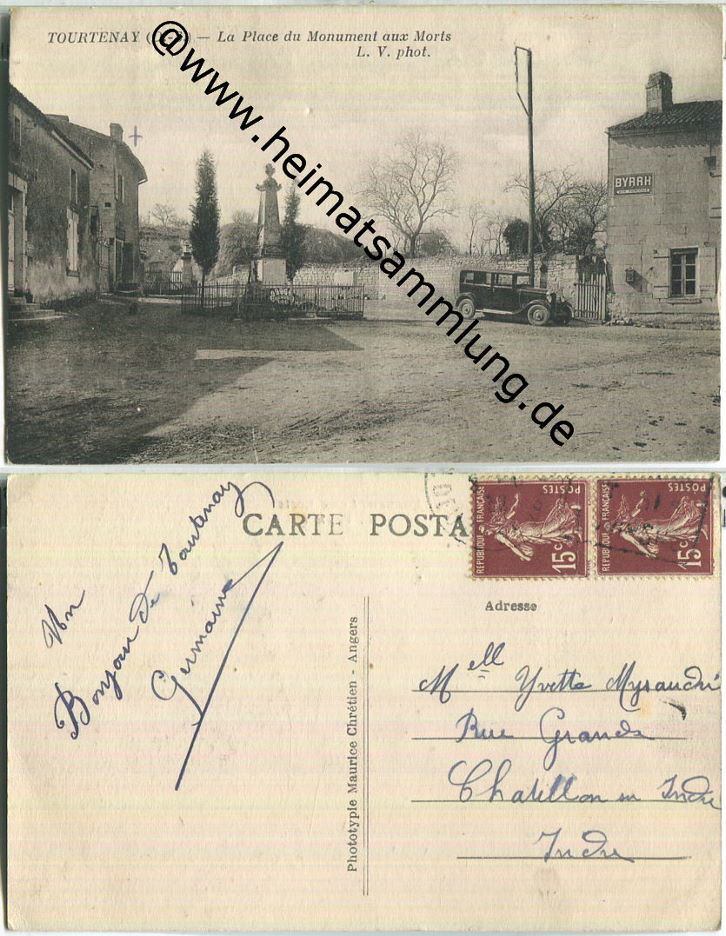 TOURTENAY — La Place du Monument aux Morts
L. V. phot.
@www.heimatsammlung.de
BYRRH
CARTE POSTA
REPUBLIQUE FRANÇAISE POSTES 15c
REPUBLIQUE FRANÇAISE POSTES 15c
Un
Bonjour de Tourtenay
Germaine
Phototypie Maurice Chrétien - Angers
Adresse
Mell Yvette
Rue Grande
Chatillon en Indre
Indre